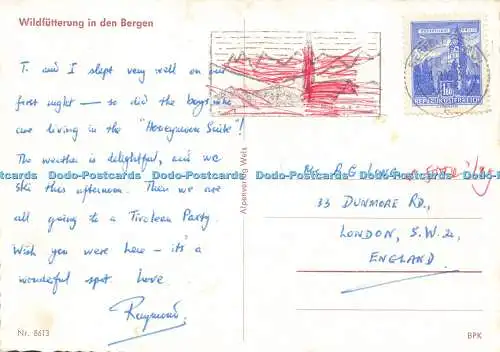 Wildfütterung in den Bergen
T. and I slept very well on our
first night — so did the boys, who
are living in the "Honeymoon Suite"!
The weather is delightful, and we
ski this afternoon. Then we are
all going to a Tirolean Party.
Wish you were here — it's a
wonderful spot. Love
Raymond
Nr. 8613
Alpenverlag Wels
REPUBLIK ÖSTERREICH
Mr. R.G. Long
33 DUNMORE RD.,
LONDON, S.W.
ENGLAND
BPK
Postcards DDD-Postcards DDD-Postcards DDD-Postcards